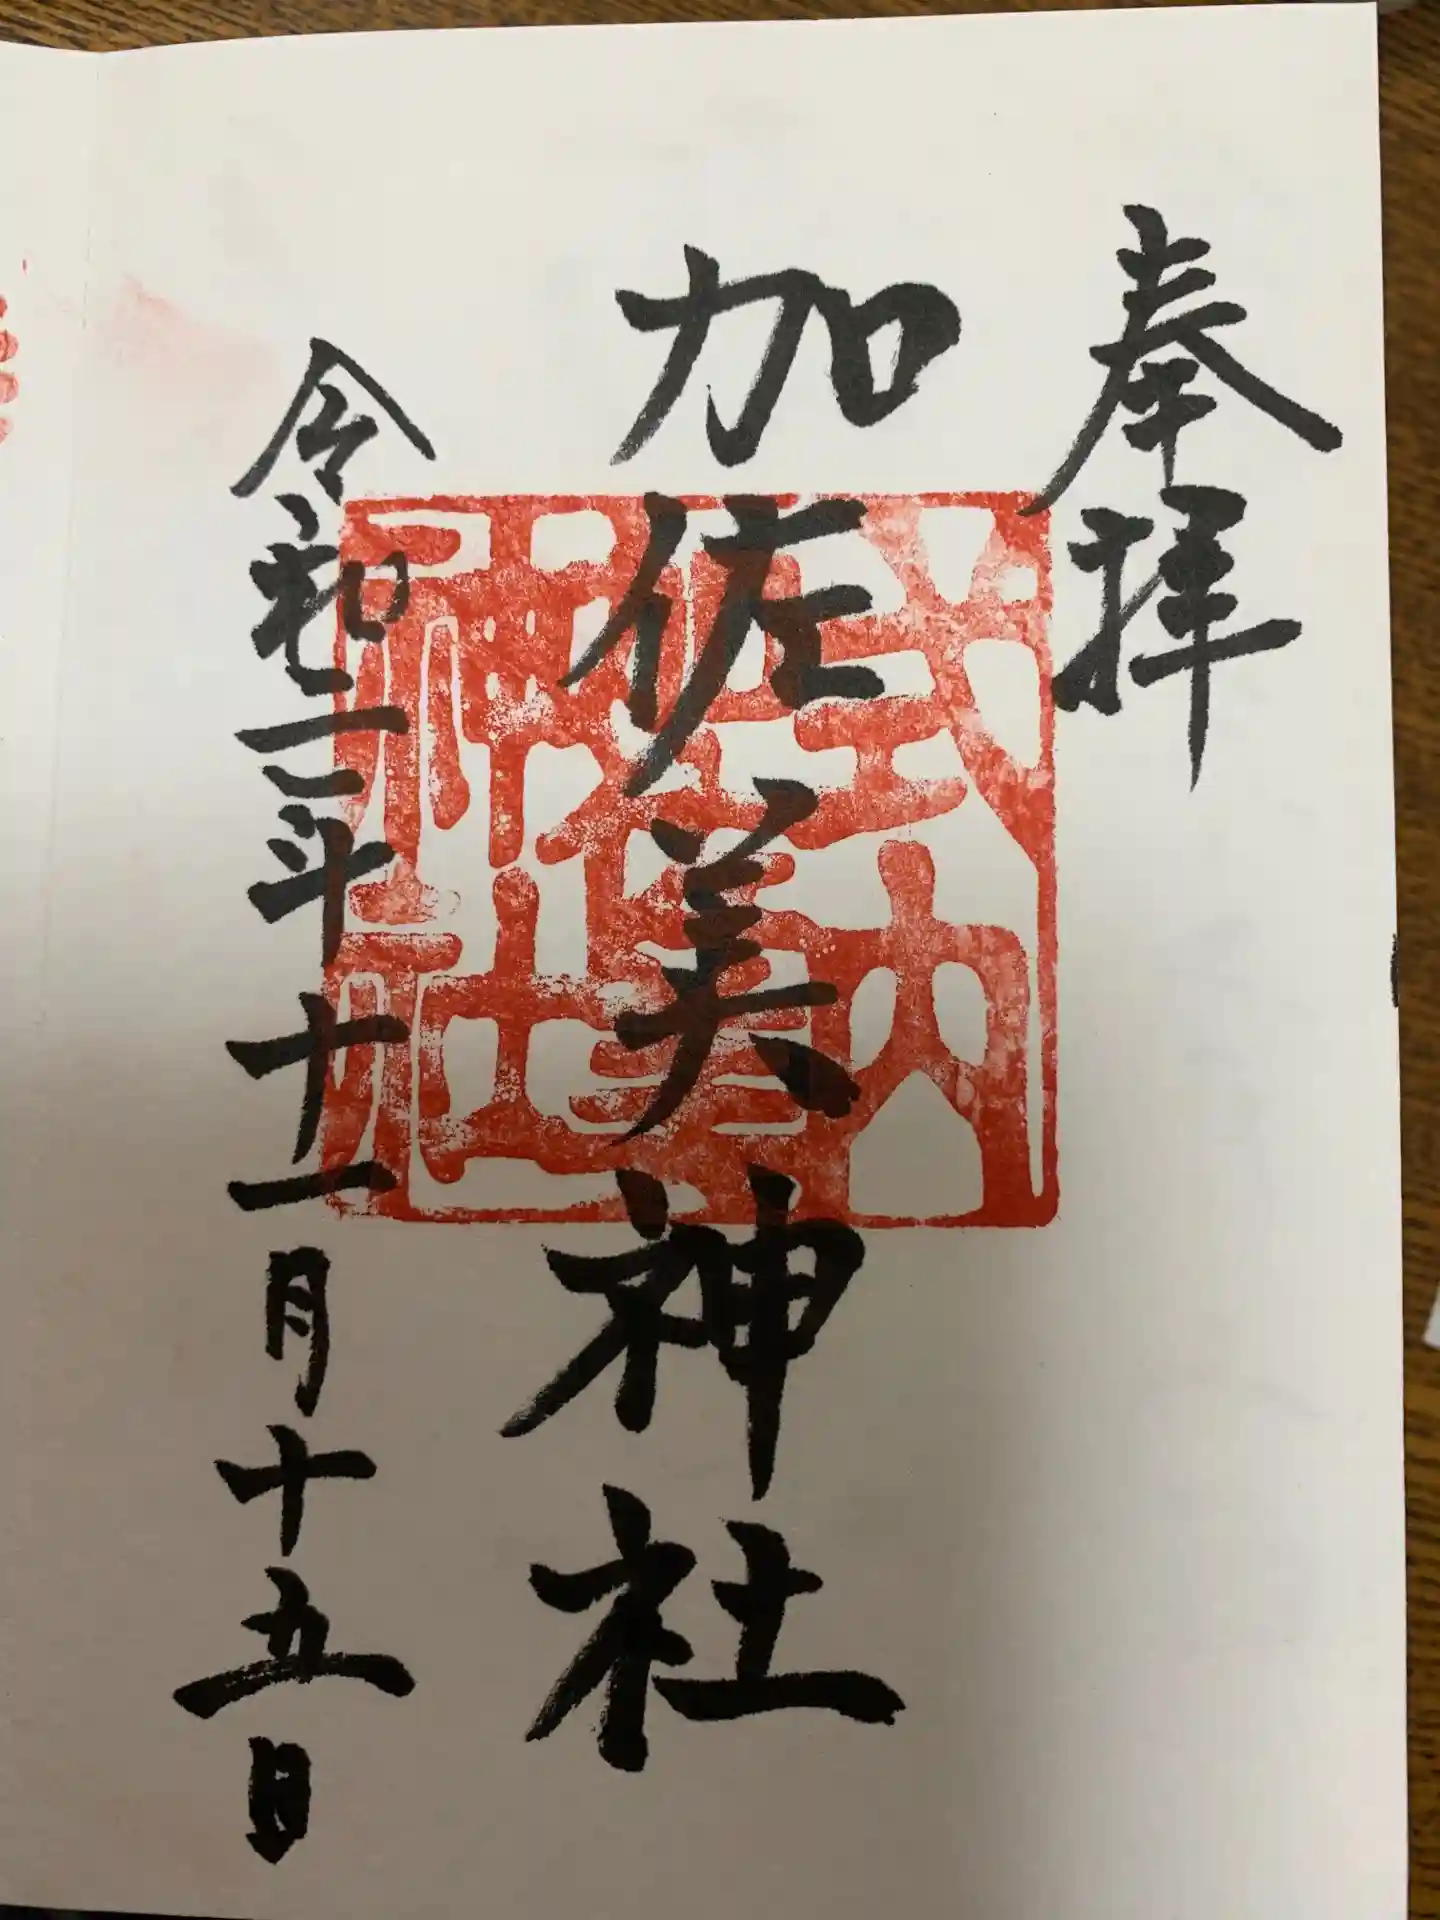 奉拝
加佐美神社
令和二年十一月十五日
式内
神社